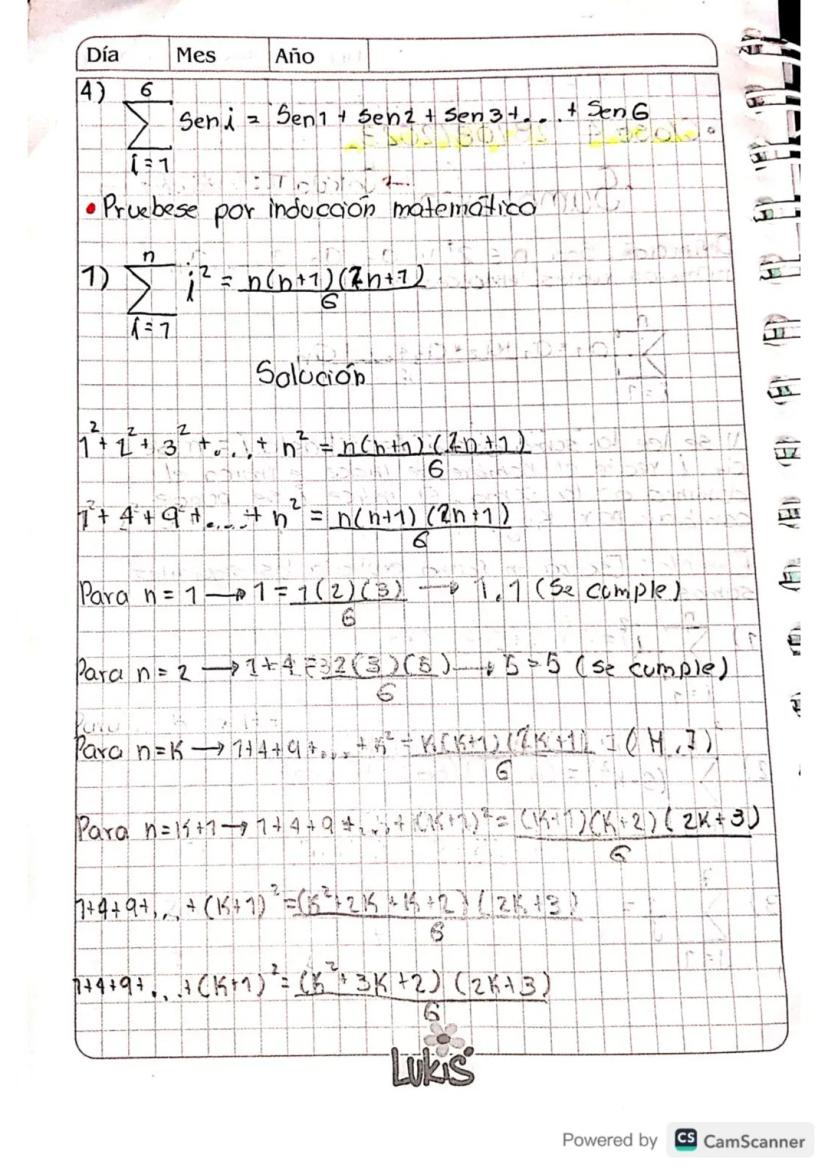 Día Mes Año
4) 6 ∑ i=1 Sen i = Sen1 + Sen2 + Sen3 + ... + Sen6
• Pruebese por inducción matemático
1) n ∑ i=1 i² = n(n+1)(2n+1) / 6
Solución
1² + 2² + 3² + ... + n² = n(n+1)(2n+1) / 6
1² + 4 + 9 + .... + n² = n(n+1)(2n+1) / 6
Para n = 1 → 1 = 1(2)(3) / 6 → 1,1 (Se cumple)
Para n = 2 → 1+4 = 2(3)(5) / 6 → 5=5 (se cumple)
Para n=K → 1+4+9+...+K² = K(K+1)(2K+1) / 6 (H.I)
Para n=K+1 → 1+4+9+...+(K+1)² = (K+1)(K+2)(2K+3) / 6
1+4+9+...+(K+1)² = (K²+2K+K+2)(2K+3) / 6
1+4+9+...+(K+1)² = (K²+3K+2)(2K+3) / 6
LUKIS
Powered by CS CamScanner